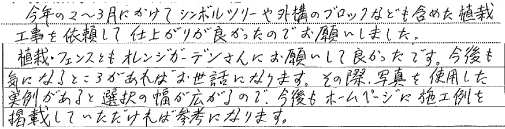 今年の2～3月にかけてシンボルツリーや外構のブロックなども含めた植栽
工事を依頼して仕上がりが良かったのでお願いしました。
植栽・フェンスともオレンジガーデンさんにお願いして良かったです。今後も
気になるところがあればお世話になります。その際、写真を使用した
実例があると選択の幅が広がるので、今後もホームページに施工例を
掲載していただければ参考になります。